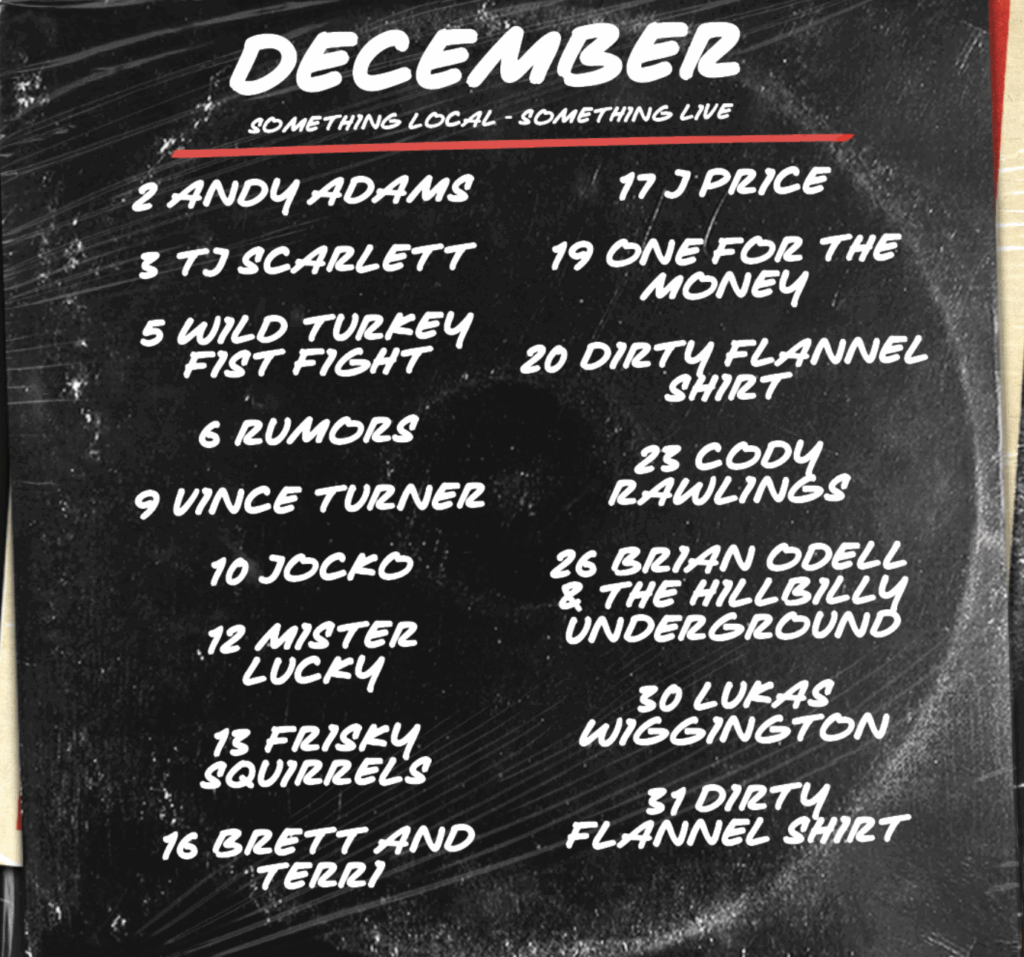 DECEMBER
SOMETHING LOCAL - SOMETHING LIVE
2 ANDY ADAMS
3 TJ SCARLETT
5 WILD TURKEY
FIST FIGHT
6 RUMORS
9 VINCE TURNER
10 JOCKO
12 MISTER
LUCKY
13 FRISKY
SQUIRRELS
16 BRETT AND
TERRI
17 J PRICE
19 ONE FOR THE
MONEY
20 DIRTY FLANNEL
SHIRT
23 CODY
RAWLINGS
26 BRIAN ODELL
& THE HILLBILLY
UNDERGROUND
30 LUKAS
WIGGINGTON
31 DIRTY
FLANNEL SHIRT